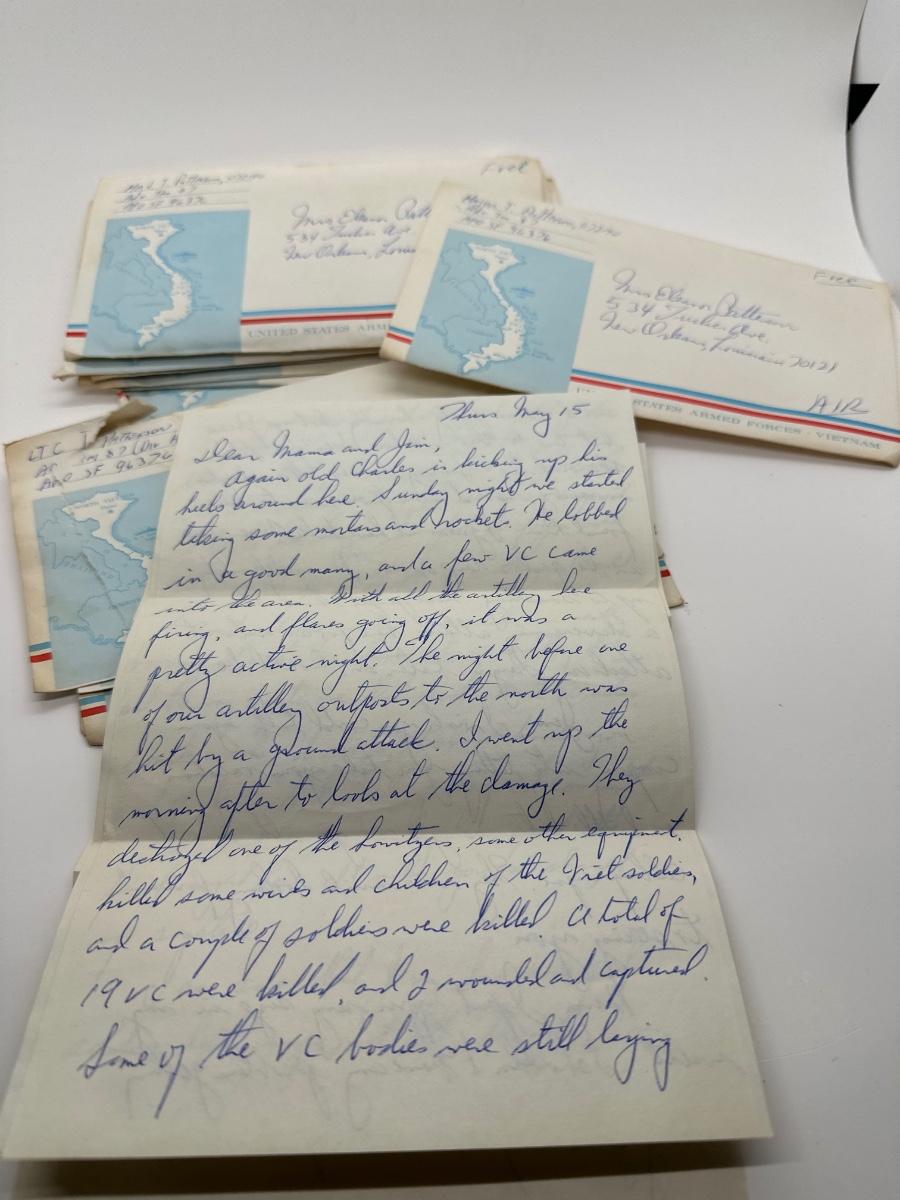 Free
Mrs Eleanor
New Orleans,
UNITED STATES ARM
Major
APO SF 96376
Free
Mrs Eleanor Patterson
534 Ave.
New Orleans, Louisiana 70121
AIR
STATES ARMED FORCES · VIETNAM
LTC Patterson
APO SF 96376
Thurs May 15
Dear Mama and Jim,
Again old Charles is kicking up his
heels around here. Sunday night we started
taking some mortars and rockets. He lobbed
in a good many, and a few VC came
into the area. With all the artillery here
firing, and flares going off, it was a
pretty active night. The night before one
of our artillery outposts to the north was
hit by a ground attack. I went up the
morning after to look at the damage. They
destroyed one of the howitzers, some other equipment,
killed some wives and children of the Viet soldiers,
and a couple of soldiers were killed. A total of
19 VC were killed, and 2 wounded and captured.
Some of the VC bodies were still laying